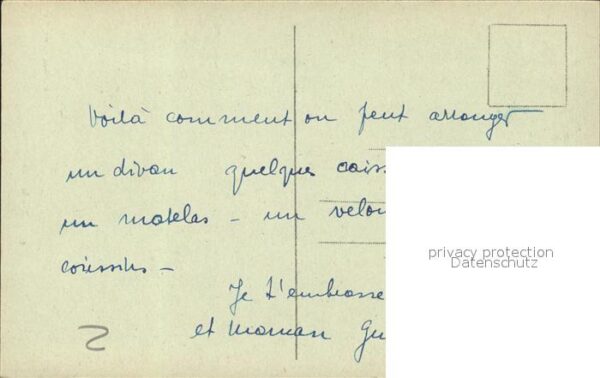 Voilà comment on peut arranger
un divan quelques caiss
un matelas - un velou
coussins -
Je t'embrasse
et Maman Gu
privacy protection
Datenschutz
2